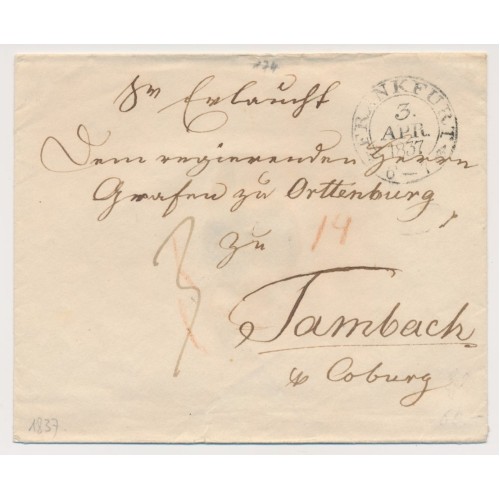 174
Sr Erlaucht
FRANKFURT
3.
APR.
1837
Dem regierenden Herrn
Grafen zu Orttenburg
zu 14
3
Tambach
p Coburg
1837.